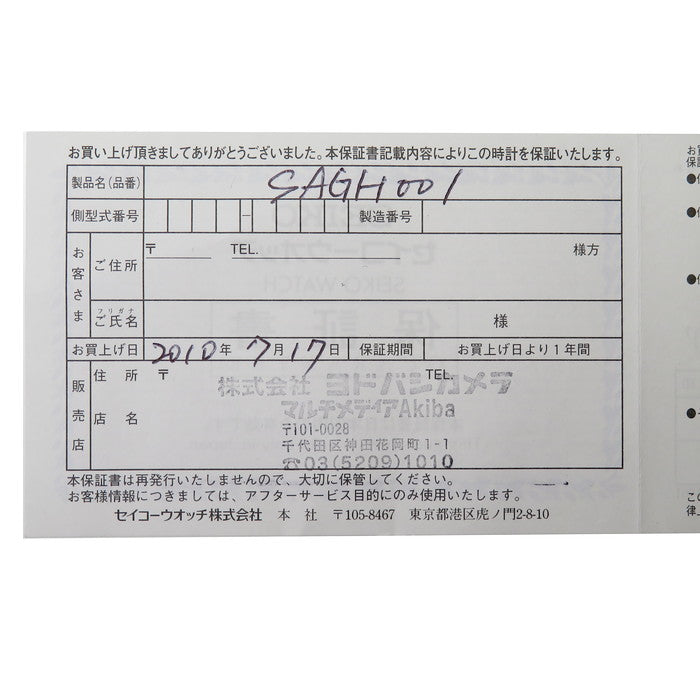 お買い上げ頂きましてありがとうございました。本保証書記載内容によりこの時計を保証いたします。
製品名(品番) SAGH001
側型式番号 － 製造番号
お客さま
ご住所 〒 TEL. 様方
フリガナ
ご氏名 様
お買上げ日 2010年 7月17日 保証期間 お買上げ日より1年間
販売店
住所 〒 TEL.
店名
株式会社 ヨドバシカメラ
マルチメディアAkiba
〒101-0028
千代田区神田花岡町1-1
☎03(5209)1010
本保証書は再発行いたしませんので、大切に保管してください。
お客様情報につきましては、アフターサービス目的にのみ使用いたします。
セイコーウオッチ株式会社 本 社 〒105-8467 東京都港区虎ノ門2-8-10